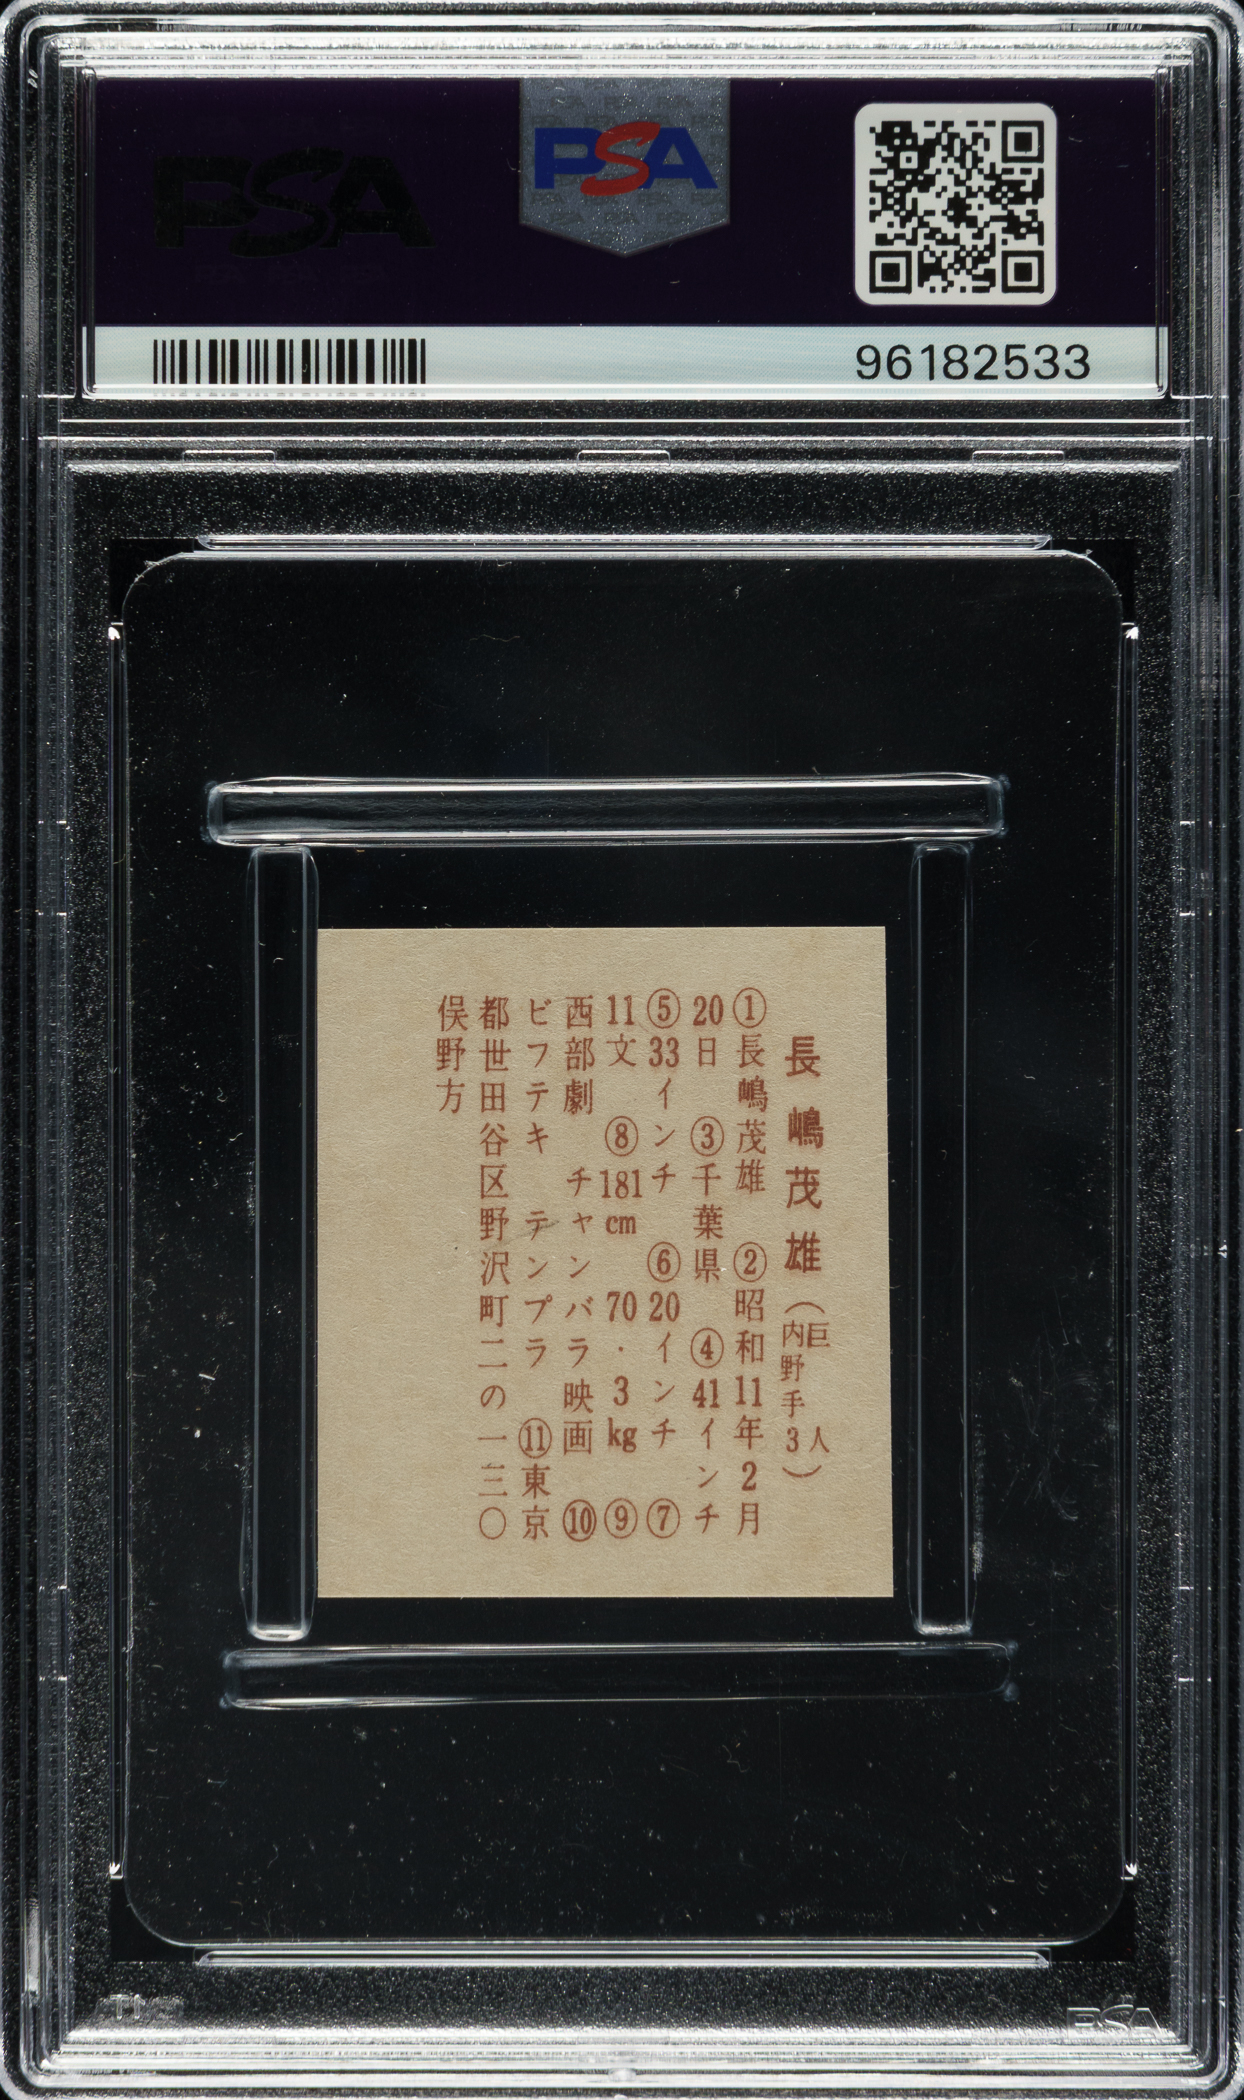 PSA
PSA
96182533
長嶋茂雄（巨人
内野手3）
①長嶋茂雄 ②昭和11年2月
20日 ③千葉県 ④41インチ
⑤33インチ ⑥20インチ ⑦
11文 ⑧181cm 70・3kg ⑨
西部劇 チャンバラ映画 ⑩
ビフテキ テンプラ ⑪東京
都世田谷区野沢町二の一三〇
俣野方
PSA